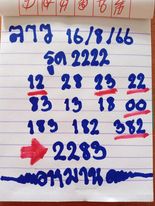 ลาว 16/8/66
รูด 2222
12 28 23 22
83 13 18 00
183 182 382
2283
อาหมาน